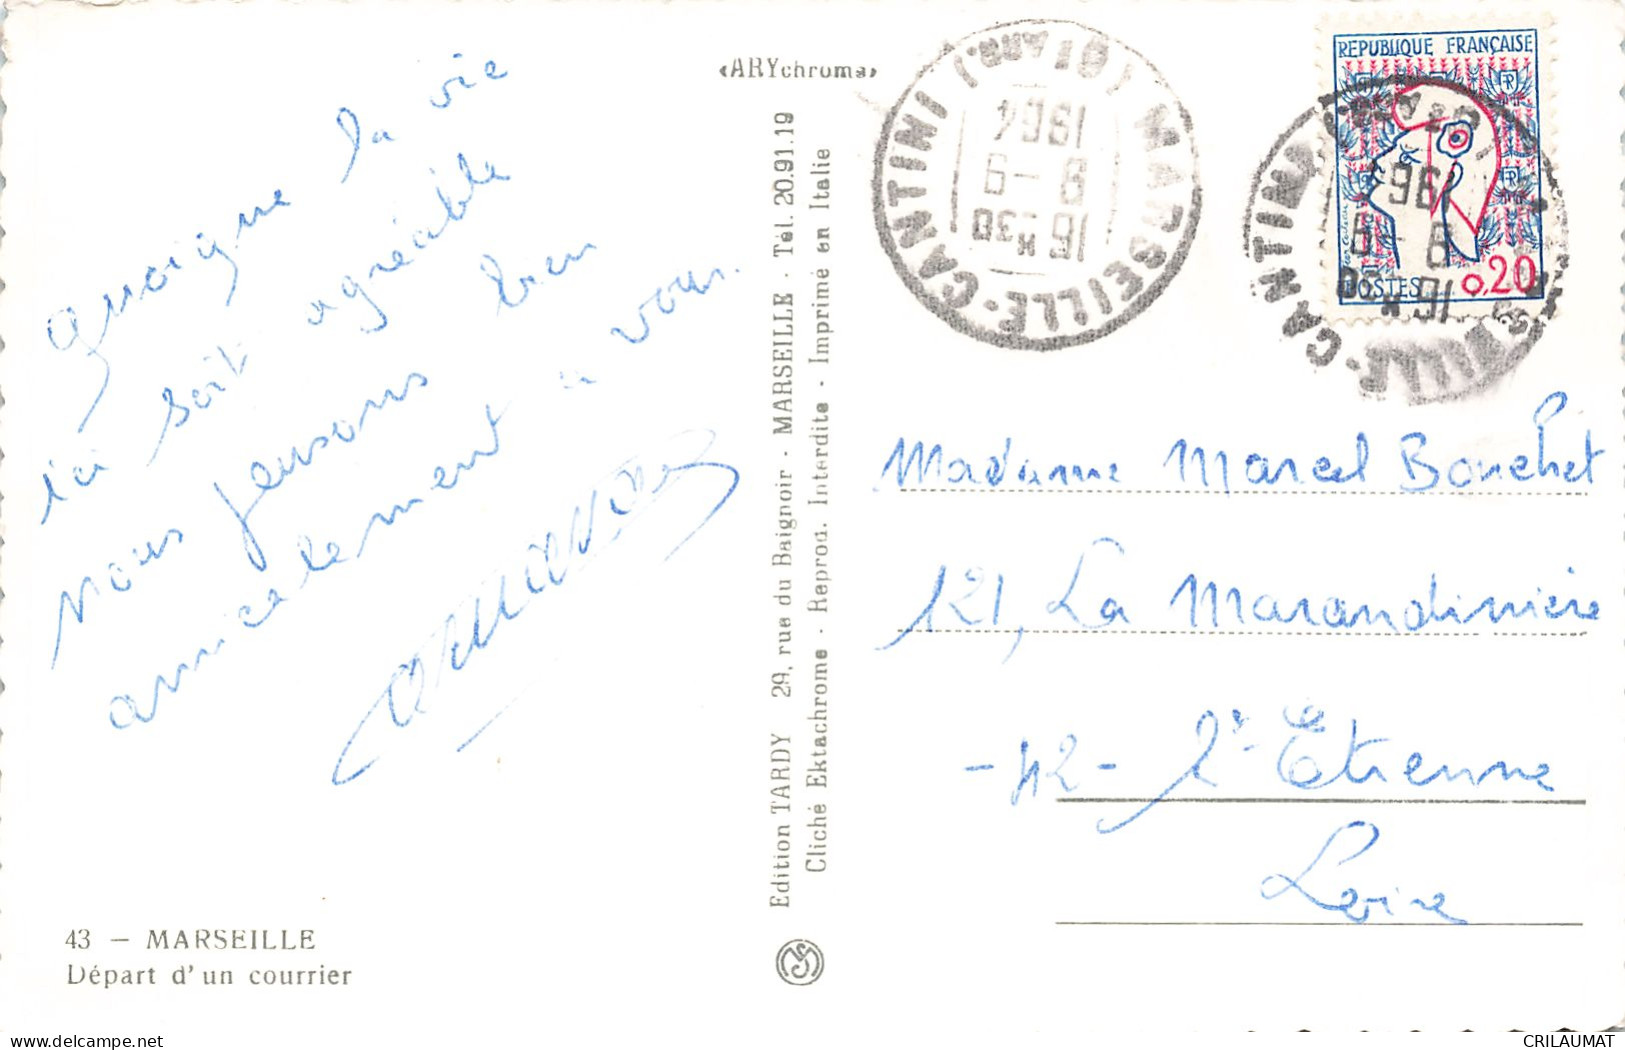 Quoique la vie
ici soit agréable
nous pensons bien
amicalement à vous.
«ARYchrome»
Edition TARDY 29, rue du Baignoir - MARSEILLE - Tél. 20.91.19
Cliché Ektachrome - Reprod. Interdite - Imprimé en Italie
MARSEILLE-CANTINI
16 H 30
8 - 9
1964
REPUBLIQUE FRANÇAISE
POSTES 0,20
Madame Marcel Bouchet
121, La Marandinière
- 42 - St Etienne
Loire
43 — MARSEILLE
Départ d'un courrier
CRILAUMAT